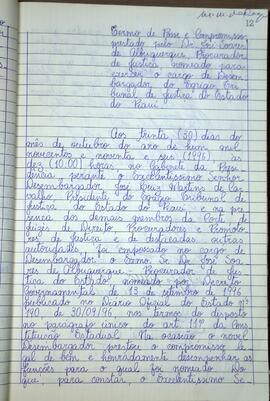 12
Termo de Posse e Compromisso
prestado pelo Dr. José Soares
de Albuquerque, Procurador
de Justiça, nomeado para
exercer o cargo de Desem-
bargador do Egrégio Tri-
bunal de Justiça do Estado
do Piauí.
Aos trinta (30) dias do
mês de outubro do ano de hum mil
novecentos e noventa e seis (1996), às
dez (10:00) horas, no Gabinete da Presi-
dência perante o Excelentíssimo Senhor
Desembargador José Luiz Martins de Car-
valho, Presidente do Egrégio Tribunal de
Justiça do Estado do Piauí, e a pre-
sença dos demais membros da Corte,
Juízes de Direito, Procuradores e Promoto-
res de Justiça e de destacadas outras
autoridades, foi empossado no cargo de
Desembargador o Exmo. Sr. Dr. José Soa-
res de Albuquerque, Procurador de Jus-
tiça do Estado, nomeado por Decreto
Governamental de 13 de setembro de 1996
publicado no Diário Oficial do Estado nº
190, de 30/09/96 nos termos do disposto
no parágrafo único do art. 111 da Cons-
tituição Estadual. Na ocasião o novel
Desembargador prestou o compromisso le-
gal de bem e honradamente desempenhar as
funções para o qual foi nomeado. Do
que, para constar, o Excelentíssimo Se-